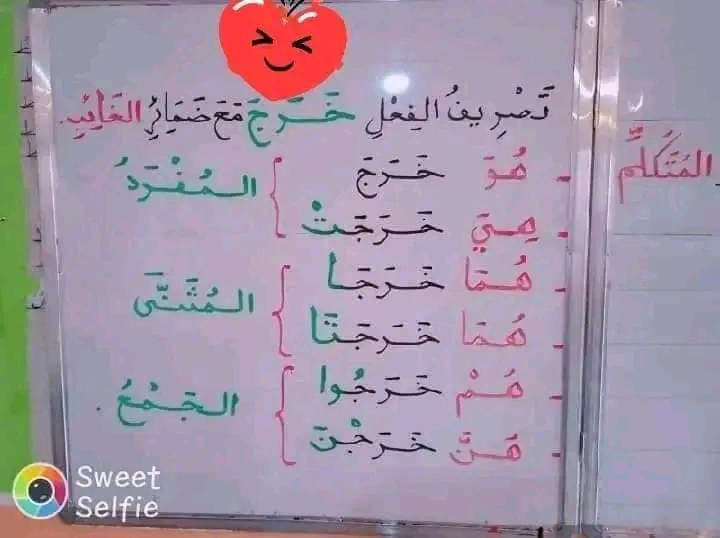 تَصْرِيفُ الفِعْلِ خَرَجَ مَعَ ضَمَائِرِ الغَائِبِ.
- هُوَ خَرَجَ
- هِيَ خَرَجَتْ
المُفْرَدُ
- هُمَا خَرَجَا
- هُمَا خَرَجَتَا
المُثَنَّى
- هُمْ خَرَجُوا
- هُنَّ خَرَجْنَ
الجَمْعُ.
المُتَكَلِّم
Sweet
Selfie